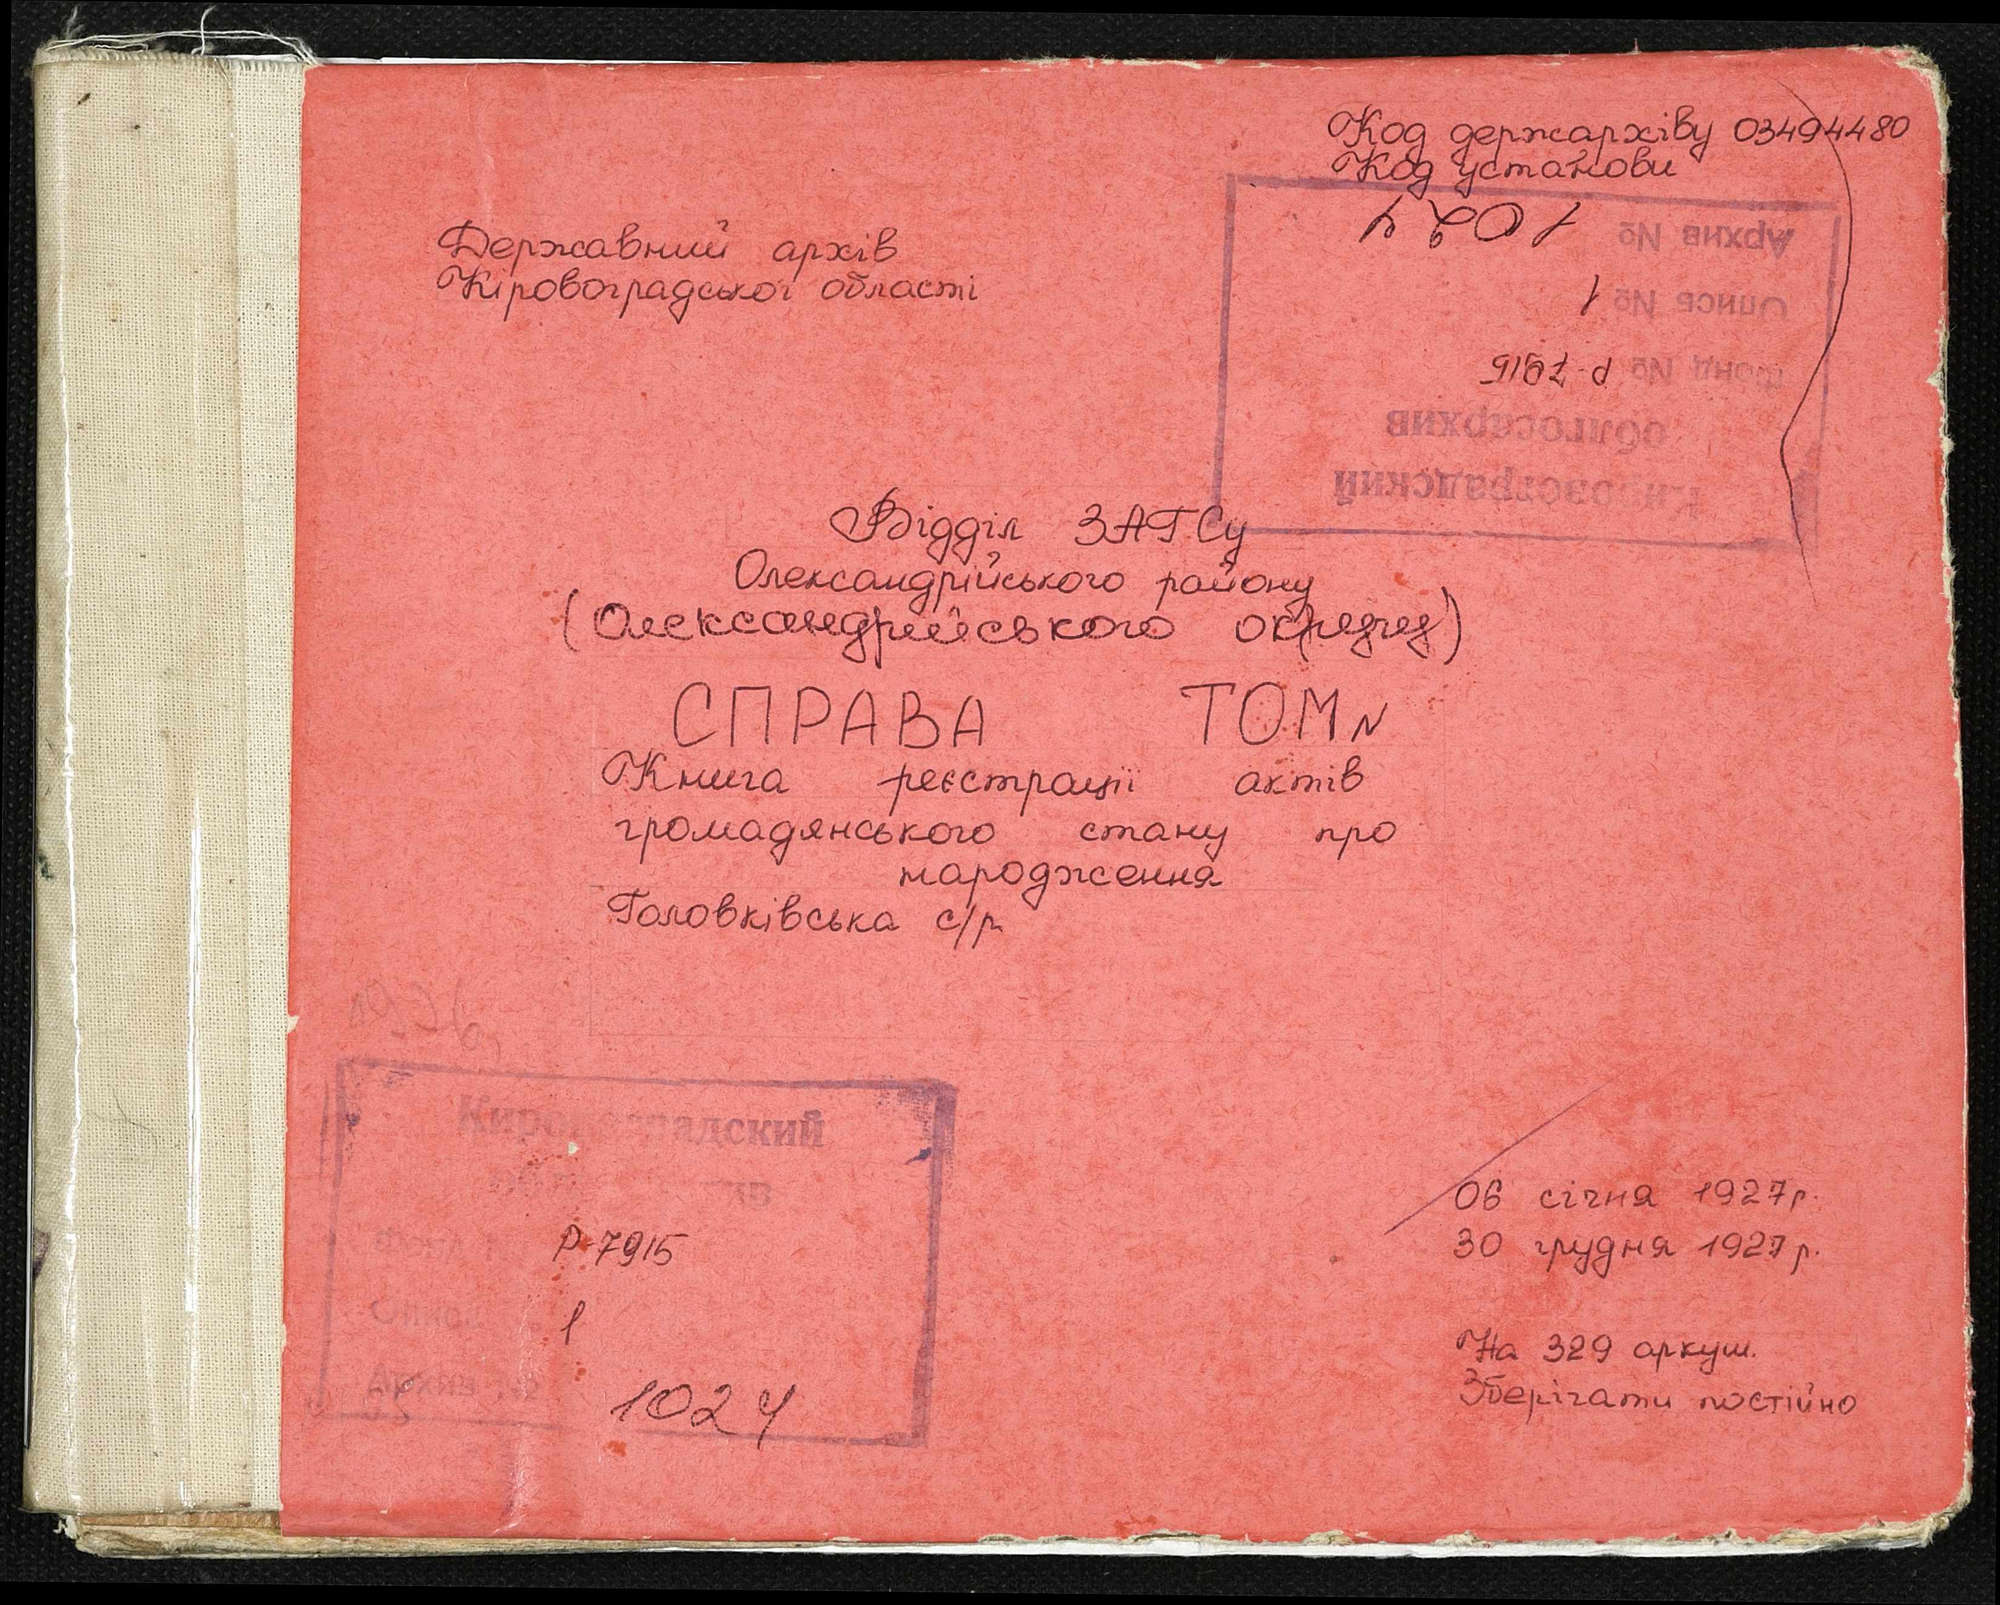 Код держархіву 03494480
Код установи
Державний архів
Кіровоградської області
Архив № 1024
Опись № 1
Фонд № Р-7915
облгосархив
Кировоградский
Відділ ЗАГСу
Олександрійського району
(Олександрийського округу)
СПРАВА ТОМ N
Книга реєстрації актів
громадянського стану про
народження
Головківська с/р
Кировоградский
Фонд № Р-7915
Опись 1
Архив № 1024
06 січня 1927 р.
30 грудня 1927 р.
На 329 аркуш.
Зберігати постійно